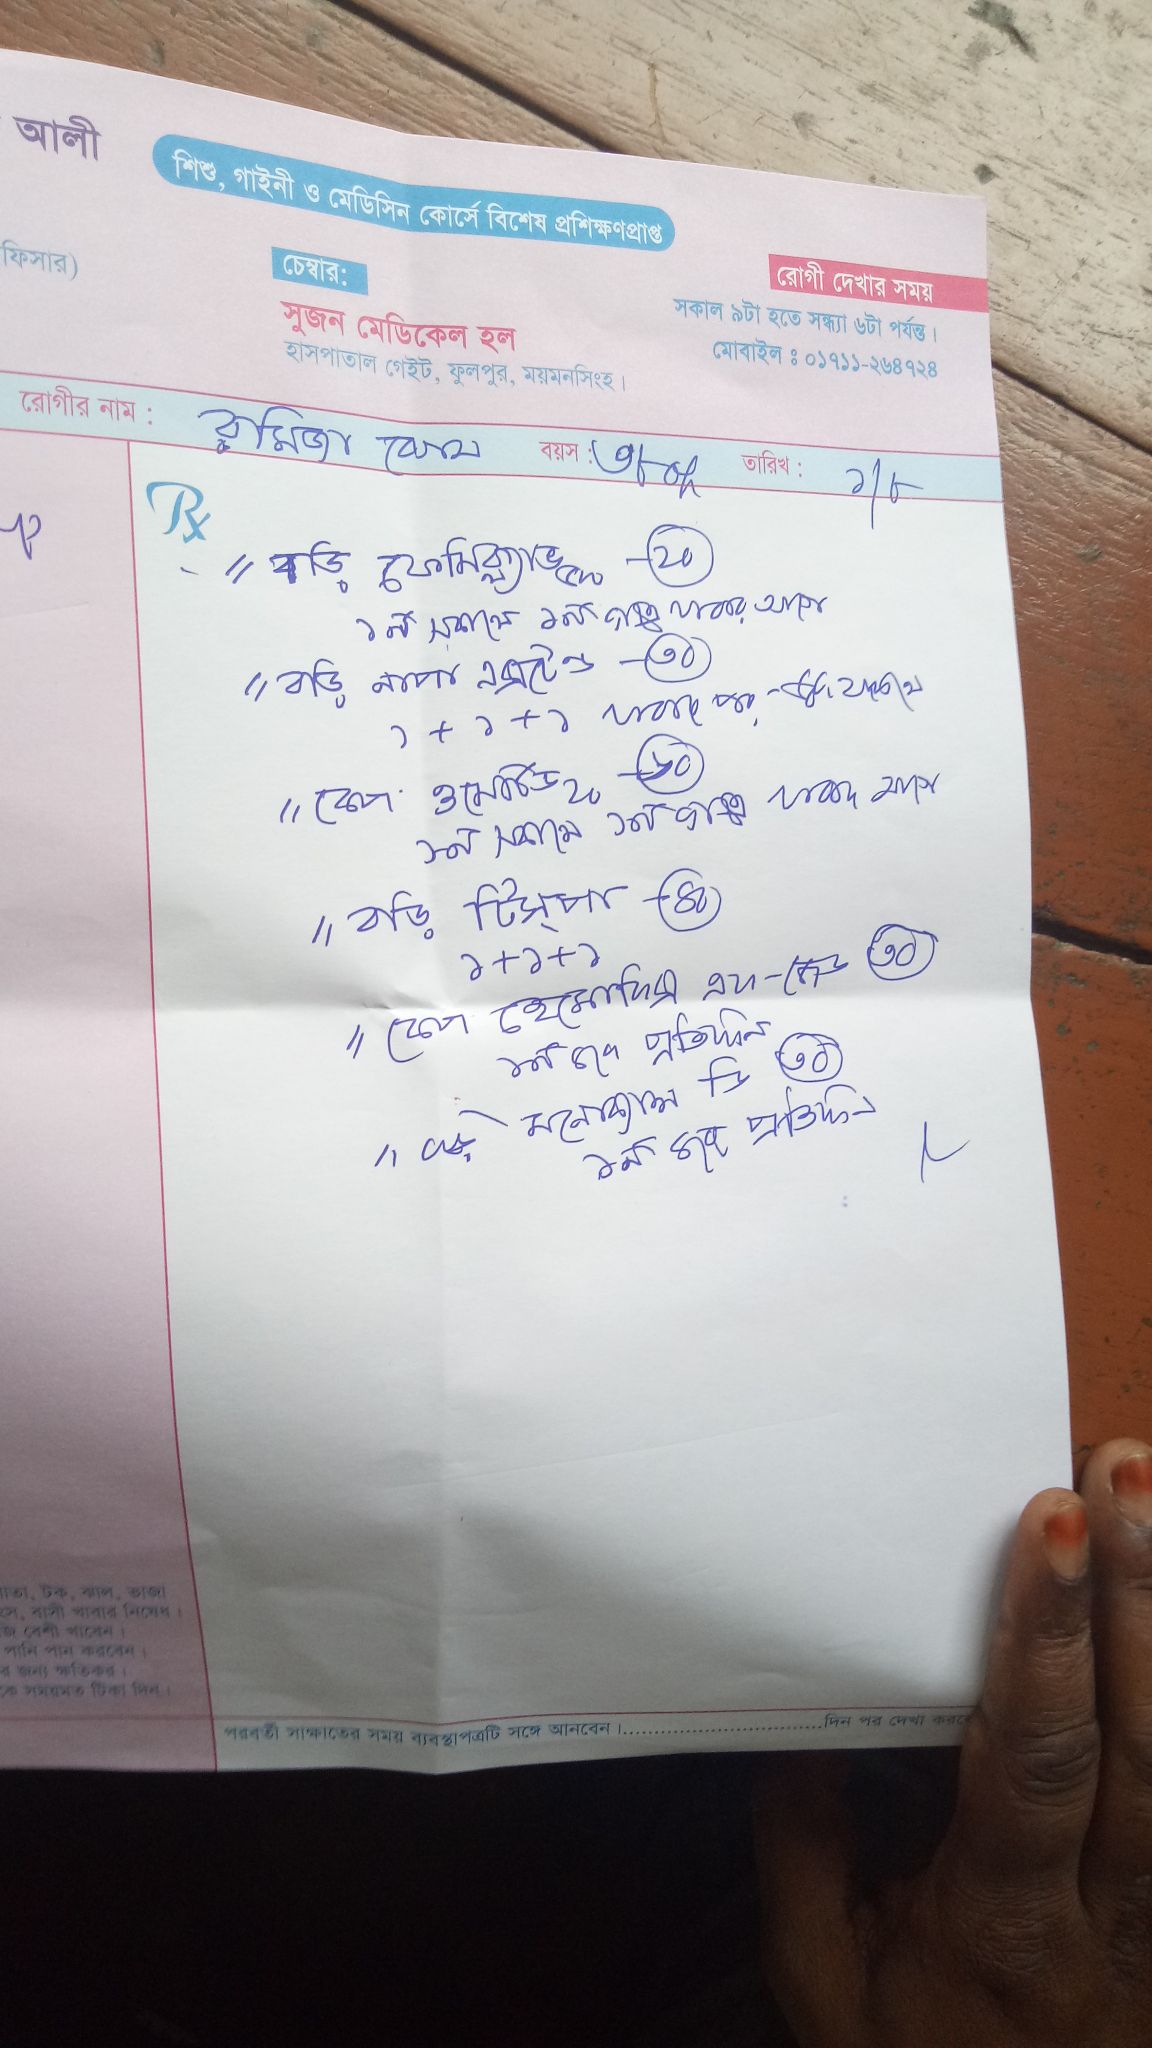 আলী
শিশু, গাইনী ও মেডিসিন কোর্সে বিশেষ প্রশিক্ষণপ্রাপ্ত
ফিসার)
চেম্বার:
সুজন মেডিকেল হল
হাসপাতাল গেইট, ফুলপুর, ময়মনসিংহ।
রোগী দেখার সময়
সকাল ৯টা হতে সন্ধ্যা ৬টা পর্যন্ত।
মোবাইল : ০১৭১১-২৬৪৭২৪
রোগীর নাম : রুমিজা বয়স : ৩৮ তারিখ : ১/৮
Rx
// বড়ি ফেমিক্ল্যাভ ৫০০ - ২০
১টা সকালে ১টা রাত্রে খাবার আগে
// বড়ি নাপা এক্সটেন্ড - ৩০
১ + ১ + ১ খাবার পর
// কেপ ওমেটিড ২০ - ৬০
১টা সকালে ১টা রাত্রে খাবার আগে
// বড়ি টিস্পা - ৪০
১+১+১
// কেপ ৩০
১টা করে প্রতিদিন
// বড়ি ডি ৩০
১টা করে প্রতিদিন
পাতা, টক, ঝাল, ভাজা
বাসী খাবার নিষেধ।
বেশী খাবেন।
পানি পান করবেন।
র জন্য ক্ষতিকর।
কে সময়মত টিকা দিন।
পরবর্তী সাক্ষাতের সময় ব্যবস্থাপত্রটি সঙ্গে আনবেন।..............................দিন পর দেখা করবে